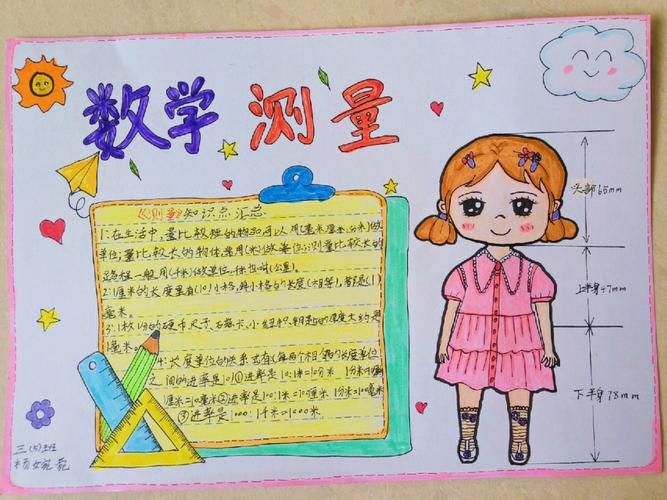 数学 测量
《测量》知识点汇总
1:在生活中,量比较短的物品可以用(毫米、厘米、分米)做
单位;量比较大的物体,常用(米)做单位;测量比较长的
路程一般用(千米)做单位,千米也叫(公里)。
2:1厘米的长度里有(10)小格,每小格的长度(相等),都是(1)
毫米。
3:1枚1分的硬币、尺子、
1毫米。
4:长度单位的关系式有(每两个相邻的长度单位
之间的进率是10)①进率是10:1米=10分米 1分米=10厘米
1厘米=10毫米②进率是100:1米=100厘米 1分米=100毫米
③进率是1000:1千米=1000米
头部65mm
上半身47mm
下半身78mm
三(5)班